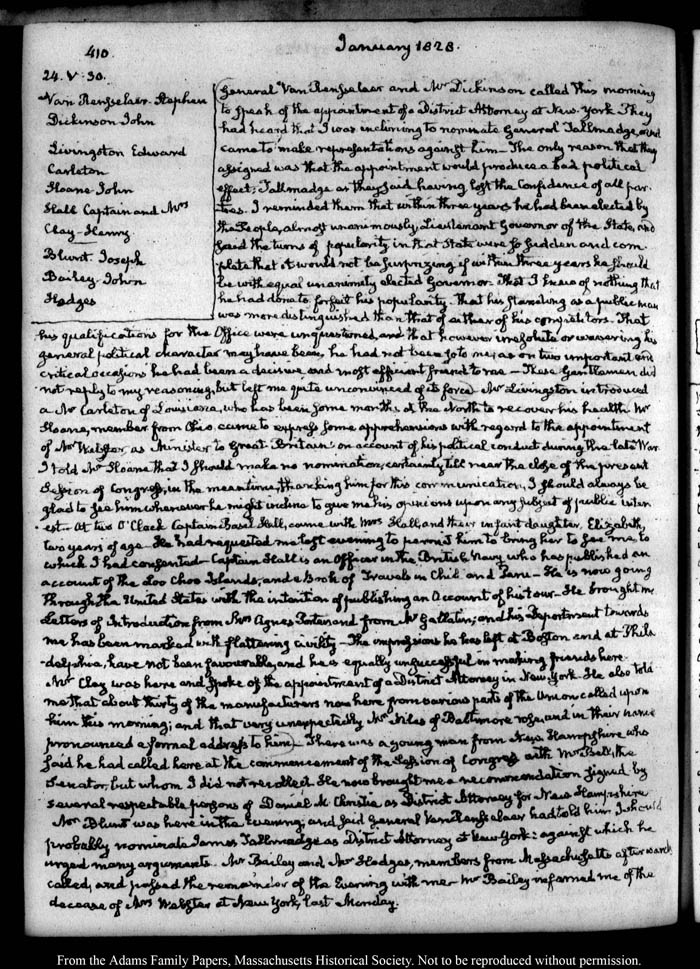 410
January 1828.
24. V. 30.
Van Rensselaer. Stephen
Dickinson John
Livingston Edward
Carleton
Sloane John
Hall Captain and Mrs
Clay—Henry
Blunt. Joseph
Bailey. John
Hodges
General Van Rensselaer and Mr Dickinson called this morning
to speak of the appointment of a District Attorney at New-York They
had heard that I was inclining to nominate General Tallmadge, and
came to make representations against him— The only reason that they
assigned was that the appointment would produce a bad political
effect; Tallmadge as they said having lost the confidence of all par-
ties. I reminded them that within three years he had been elected by
the People, almost unanimously, Lieutenant Governor of the State, and
said the turns of popularity in that State were so sudden and com-
plete that it would not be surprizing if within three years he should
be with equal unanimity elected Governor. That I knew of nothing that
he had done to forfeit his popularity. That his standing as a public man
was more distinguished than that of either of his competitors. That
his qualifications for the Office were unquestioned, and that however irresolute or wavering his
general political character may have been, he had not been so to me; as on two important and
critical occasions he had been a decisive and most efficient friend to me— These Gentlemen did
not reply to my reasoning, but left me quite unconvinced of its force. Mr Livingston introduced
a Mr Carleton of Louisiana, who has been some months at the North to recover his health. Mr
Sloane, member from Ohio, came to express some apprehensions with regard to the appointment
of Mr Webster, as Minister to Great-Britain: on account of his political conduct during the late War.
I told Mr Sloane that I should make no nomination, certainly till near the close of the present
Session of Congress; in the meantime, thanking him for this communication, I should always be
glad to see him whenever he might incline to give me his opinions upon any subject of public inter-
est— At two O'Clock Captain Basil Hall, came with Mrs Hall, and their infant daughter, Elizabeth,
two years of age— He had requested me last evening to permit him to bring her to see me, to
which I had consented— Captain Hall is an Officer in the British Navy, who has published an
account of the Loo Choo Islands, and a Book of Travels in Chili and Peru— He is now going
through the United States with the intention of publishing an Account of his tour— He brought me
Letters of Introduction from Mrs Agnes Porter and from Mr Gallatin; and his Deportment towards
me has been marked with flattering civility— The impressions he has left at Boston and at Phila-
delphia, have not been favourable, and he is equally unsuccessful in making friends here.
Mr Clay was here and spoke of the appointment of a District Attorney in New York. He also told
me that about thirty of the manufacturers now here from various parts of the Union called upon
him this morning; and that very unexpectedly Mr Niles of Baltimore rose, and in their name
pronounced a formal address to him— There was a young man from New Hampshire who
said he had called here at the commencement of the Session of Congress with Mr Bell, the
Senator, but whom I did not recollect. He now brought me a recommendation signed by
several respectable persons of Daniel M Christie as District Attorney for New Hampshire
Mr Blunt was here in the Evening; and said General Van Rensselaer had told him I should
probably nominate James Tallmadge as District Attorney at New York: against which he
urged many arguments. Mr Bailey and Mr Hodges, members from Massachusetts afterwards
called, and passed the remainder of the Evening with me— Mr Bailey informed me of the
decease of Mrs Webster at New York, last Monday.
From the Adams Family Papers, Massachusetts Historical Society. Not to be reproduced without permission.